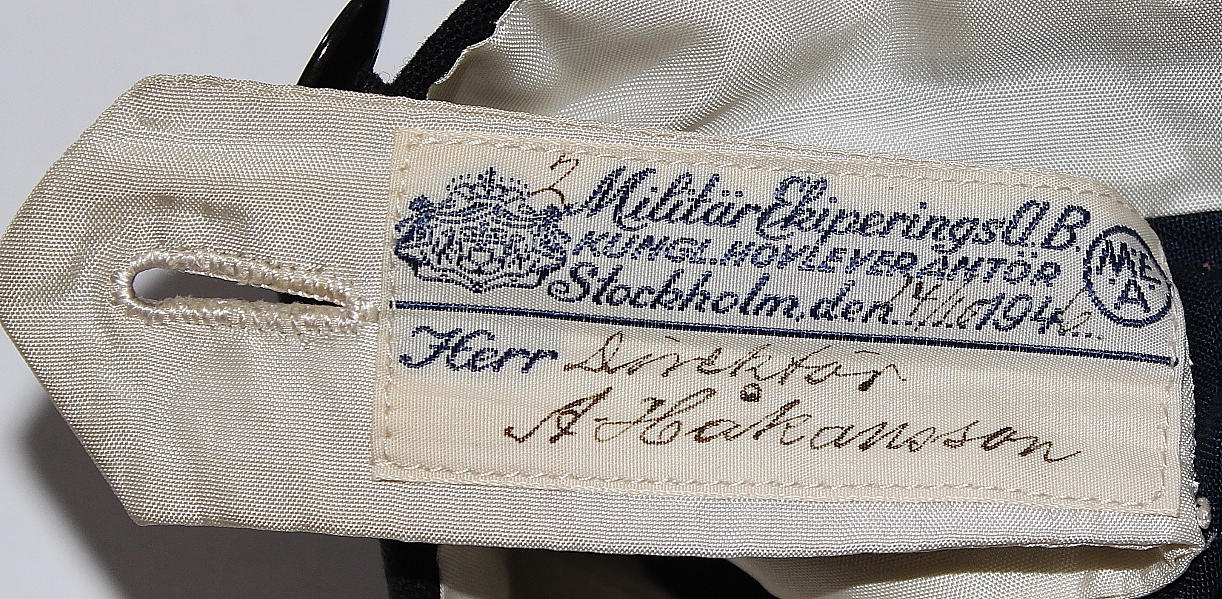 2
Militär Ekiperings A.B
KUNGL. HOVLEVERANTÖR
M.E.A
Stockholm, den 24/10 194
Herr Direktör
A Håkansson